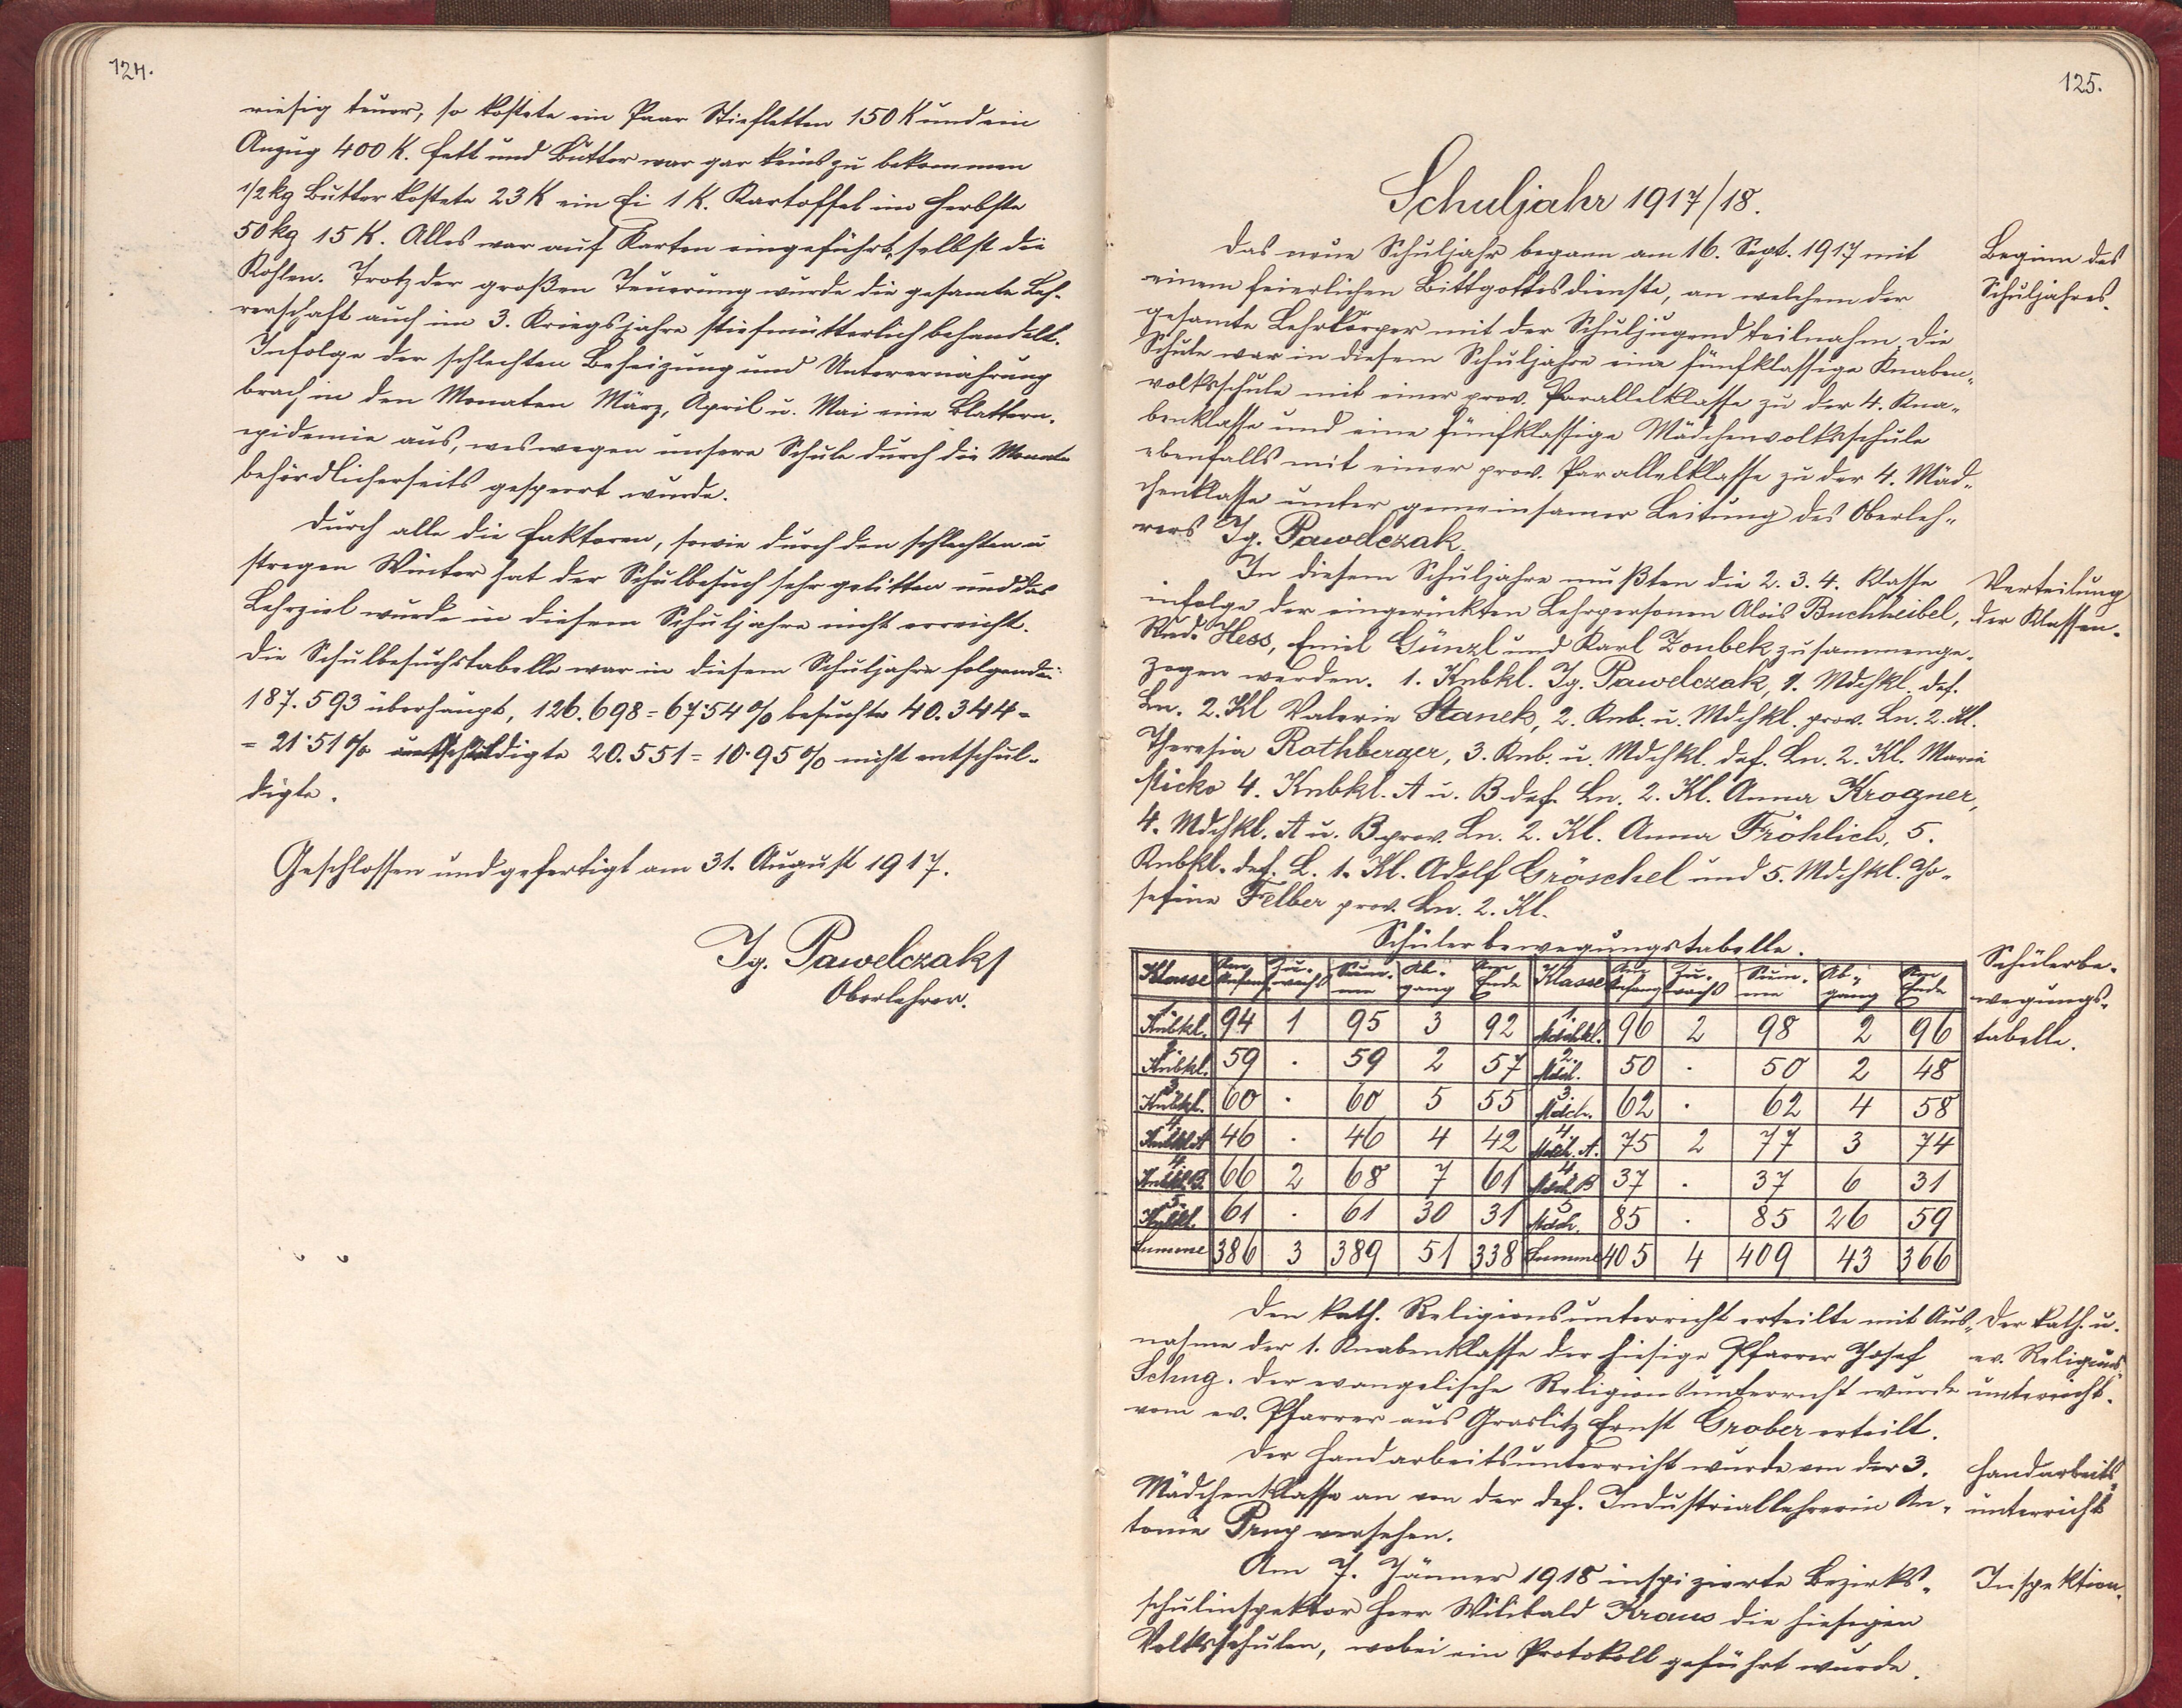 124.
riesig teuer, so kostete ein Paar Stiefletten 150 K und ein
Anzug 400 K. Fett und Butter war gar keins zu bekommen
1/2 kg Butter kostete 23 K ein Ei 1 K. Kartoffel im Herbste
50 kg 15 K. Alles war auf Karten eingeführt, selbst die
Kohlen. Trotz der großen Teuerung wurde die gesamte Leh-
rerschaft auch im 3. Kriegsjahre stiefmütterlich behandelt.
Infolge der schlechten Beheizung und Unterernährung
brach in den Monaten März, April u. Mai eine Blattern-
epidemie aus, weswegen unsere Schule durch die Monate
behördlicherseits gesperrt wurde.
Durch alle die Faktoren, sowie durch den schlechten u
stregen Winter hat der Schulbesuch sehr gelitten und das
Lehrziel wurde in diesem Schuljahre nicht erreicht.
Die Schulbesuchstabelle war in diesem Schuljahre folgende:
187.593 überhaupt, 126.698 = 67·54 % besuchte 40.344 =
= 21·51 % entschuldigte 20.551 = 10·95 % nicht entschul-
digte.
Geschlossen und gefertigt am 31. August 1917.
Ig. Pawelczak
Oberlehrer.
125.
Schuljahr 1917/18.
Das neue Schuljahr begann am 16. Sept. 1917 mit
einem feierlichen Bittgottesdienste, an welchem der
gesamte Lehrkörper mit der Schuljugend teilnahm. Die
Schule war in diesem Schuljahre eine fünfklassige Knaben-
volksschule mit einer prov. Parallelklasse zu der 4. Kna-
benklasse und eine fünfklassige Mädchenvolksschule
ebenfalls mit einer prov. Parallelklasse zu der 4. Mäd-
chenklasse unter gemeinsamer Leitung des Oberleh-
rers Ig. Pawelczak.
Beginn des
Schuljahres.
In diesem Schuljahre mußten die 2. 3. 4. Klasse
infolge der eingerückten Lehrpersonen Alois Buchheibel,
Rud. Hess, Emil Günzl und Karl Zoubek zusammenge-
zogen werden. 1. Knbkl. Ig. Pawelczak, 1. Mdchkl. def.
Ln. 2. Kl Valerie Stanek, 2. Knb. u. Mdchkl. prov. Ln. 2. Kl.
Theresia Rothberger, 3. Knb. u. Mdchkl. def. Ln. 2. Kl. Marie
Micko 4. Knbkl. A u. B def. Ln. 2. Kl. Anna Krogner,
4. Mdchkl. A u. B prov. Ln. 2. Kl. Anna Fröhlich, 5.
Knbkl. def. L. 1. Kl. Adolf Gröschel und 5. Mdchkl. Jo-
sefine Felber prov. Ln. 2. Kl.
Verteilung
der Klassen.
Schülerbewegungstabelle.
Schülerbe-
wegungs-
tabelle.
Klasse Am Anfang Zu-wachs Sum-me Ab-gang Am Ende Klasse Am Anfang Zu-wachs Sum-me Ab-gang Am Ende
1. Knbkl. 94 1 95 3 92 1. Mdchkl. 96 2 98 2 96
2. Knbkl. 59 . 59 2 57 2. Mdch. 50 . 50 2 48
3. Knbkl. 60 . 60 5 55 3. Mdch. 62 . 62 4 58
4. Knbkl. A 46 . 46 4 42 4. Mdch. A. 75 2 77 3 74
4. Knbkl. B. 66 2 68 7 61 4. Mdch B 37 . 37 6 31
5. Knbkl. 61 . 61 30 31 5 Mdch. 85 . 85 26 59
Summe 386 3 389 51 338 Summe 405 4 409 43 366
Den kath. Religionsunterricht erteilte mit Aus-
nahme der 1. Knabenklasse der hiesige Pfarrer Josef
Schug. Der evangelische Religionsunterricht wurde
vom ev. Pfarrer aus Graslitz Ernst Grober erteilt.
Der kath. u.
ev. Religions-
unterricht.
Der Handarbeitsunterricht wurde von der 3.
Mädchenklasse an von der def. Industriallehrerin An-
tonie versehen.
Handarbeits-
unterricht
Am 7. Jänner 1918 inspizierte Bezirks-
schulinspektor Herr Wilibald Kraus die hiesigen
Volksschulen, wobei ein Protokoll geführt wurde.
Inspektion.